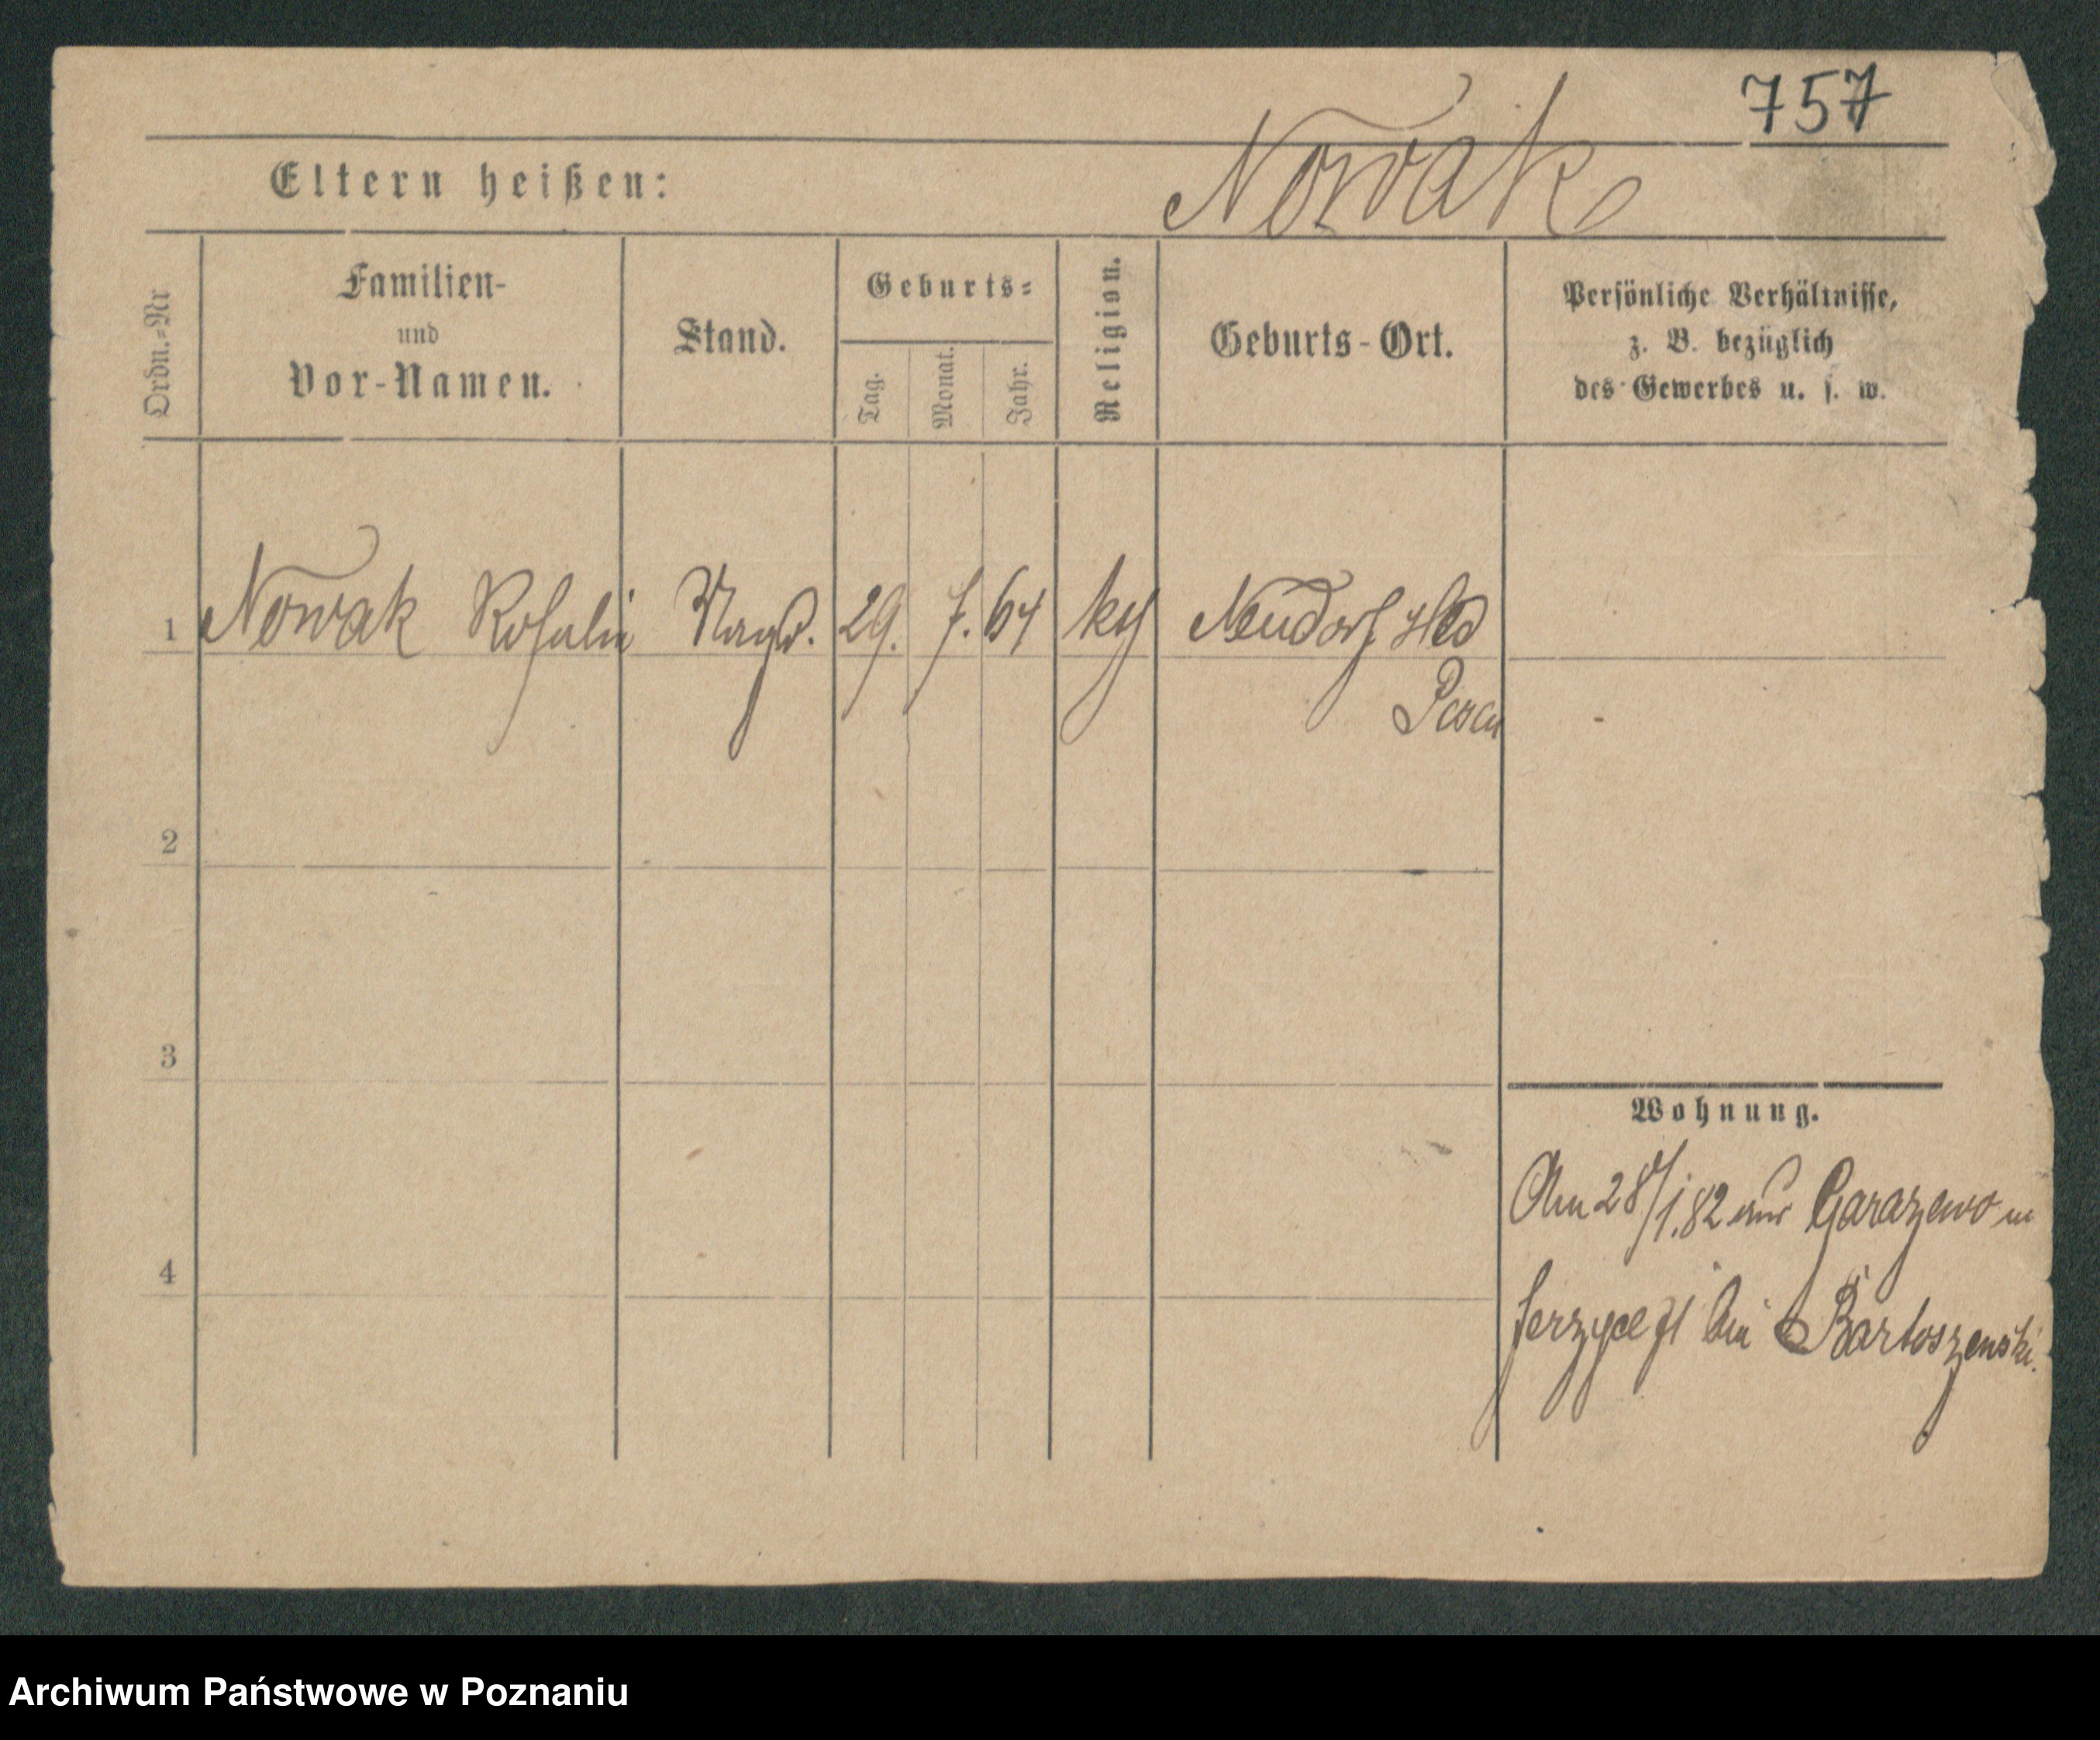 757
Nowak
Eltern heißen:
Ordn.-Nr
Familien-
und
Vor-Namen.
Stand.
Geburts-
Tag.
Monat.
Jahr.
Religion.
Geburts-Ort.
Persönliche Verhältnisse,
z. B. bezüglich
des Gewerbes u. s. w.
1 Nowak Rosalie Magd. 29. 7. 64 kth Neudorf
Posen
2
3
4
Wohnung.
Am 28/1.82 aus Garazewo in
Jerzyce bei Bartoszewski.
Archiwum Państwowe w Poznaniu